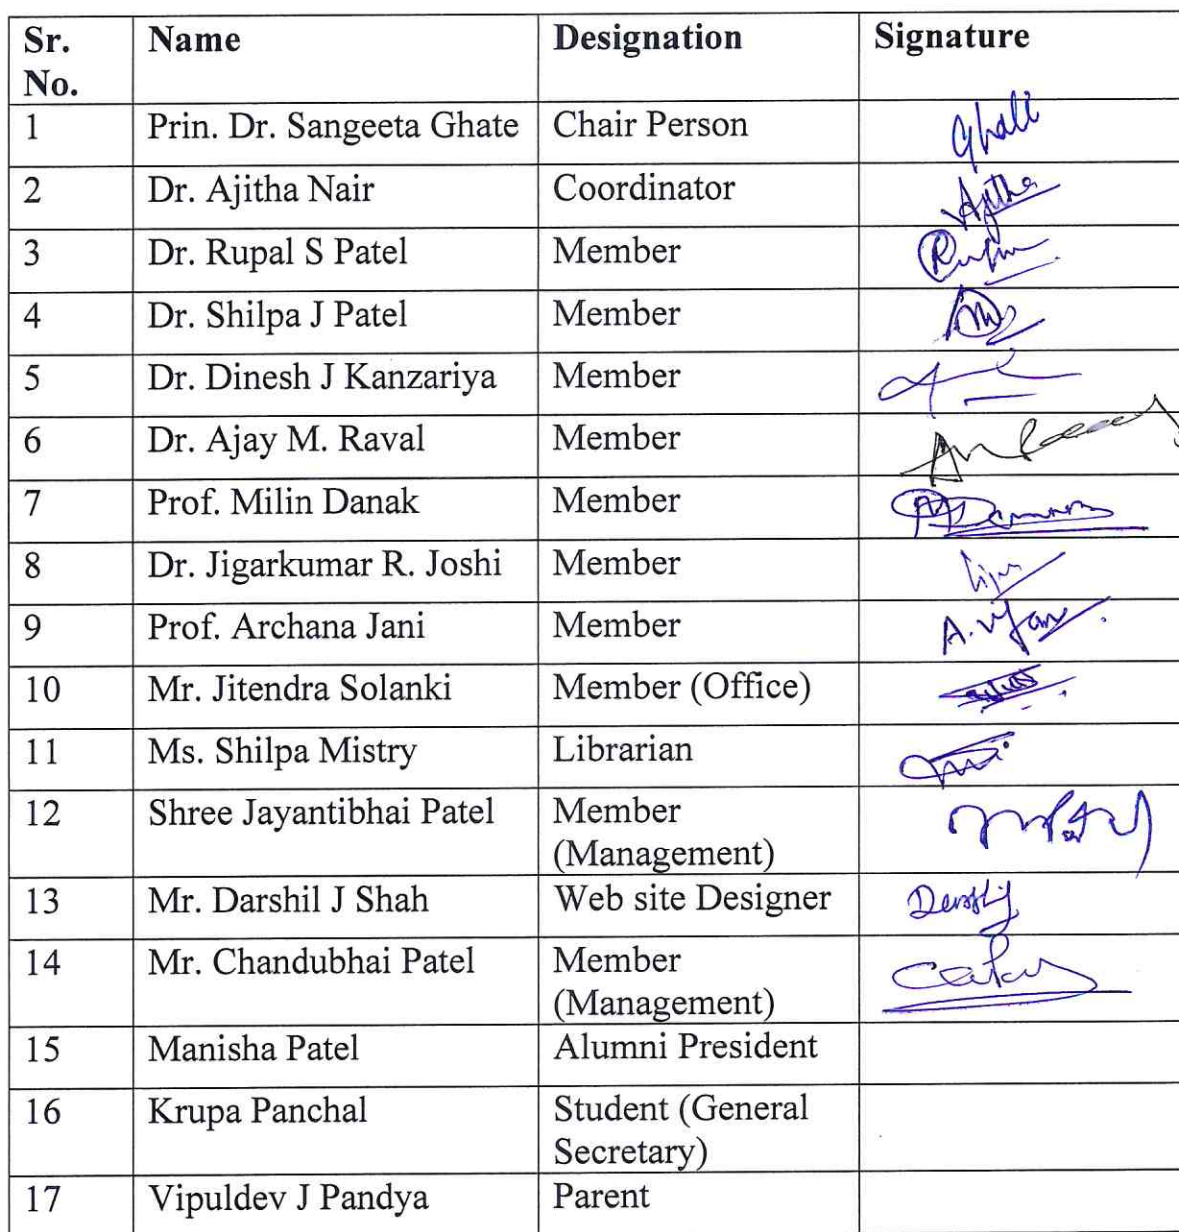 Sr. No. Name Designation Signature
1 Prin. Dr. Sangeeta Ghate Chair Person Ghate
2 Dr. Ajitha Nair Coordinator Ajitha
3 Dr. Rupal S Patel Member
4 Dr. Shilpa J Patel Member
5 Dr. Dinesh J Kanzariya Member
6 Dr. Ajay M. Raval Member
7 Prof. Milin Danak Member
8 Dr. Jigarkumar R. Joshi Member
9 Prof. Archana Jani Member
10 Mr. Jitendra Solanki Member (Office)
11 Ms. Shilpa Mistry Librarian
12 Shree Jayantibhai Patel Member
(Management)
13 Mr. Darshil J Shah Web site Designer
14 Mr. Chandubhai Patel Member
(Management)
15 Manisha Patel Alumni President
16 Krupa Panchal Student (General
Secretary)
17 Vipuldev J Pandya Parent